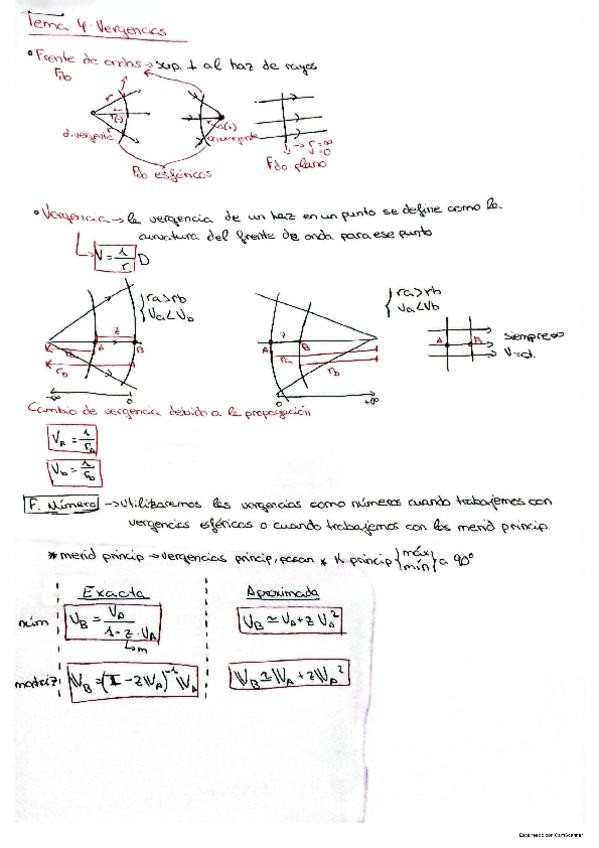 Tema 4. Vergencias
• Frente de ondas → sup. ⊥ al haz de rayos
Fdo
r
r(-)
r(+)
divergente
convergente
→ r=∞
v=0
Fdo esféricos
Fdo plano
• Vergencia → la vergencia de un haz en un punto se define como la
curvatura del frente de onda para ese punto
V = 1/r D
{ra>rb
Va<Vb
{ra>rb
Va<Vb
z
A
B
ra
rb
z
A
B
ra
rb
A
B
siempre ∞
V=ct.
-∞
0
0
+∞
Cambio de vergencia debido a la propagación
VA = 1/rA
Vb = 1/rb
F. Número → utilizaremos las vergencias como números cuando trabajemos con
vergencias esféricas o cuando trabajemos con los merid princip.
* merid princip → vergencias princip, pasan * K princip {máx mín} a 90°
Exacta
Aproximada
núm
VB = VA / 1-z·VA
↳ m
VB ≃ VA + z VA²
matriz
VB = (I - zVA)⁻¹ VA
VB ≃ VA + zVA²
Escaneado con CamScanner